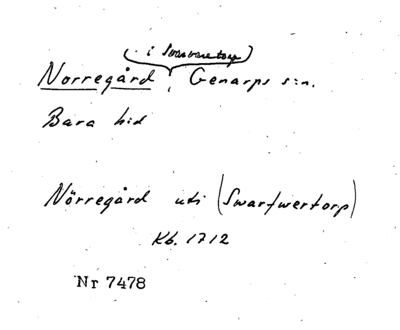 (i Svarvaretorp)
Norregård, Genarps s:n.
Bara hd
Nörregård uti (Swarfwertorp)
Kb. 1712
Nr 7478